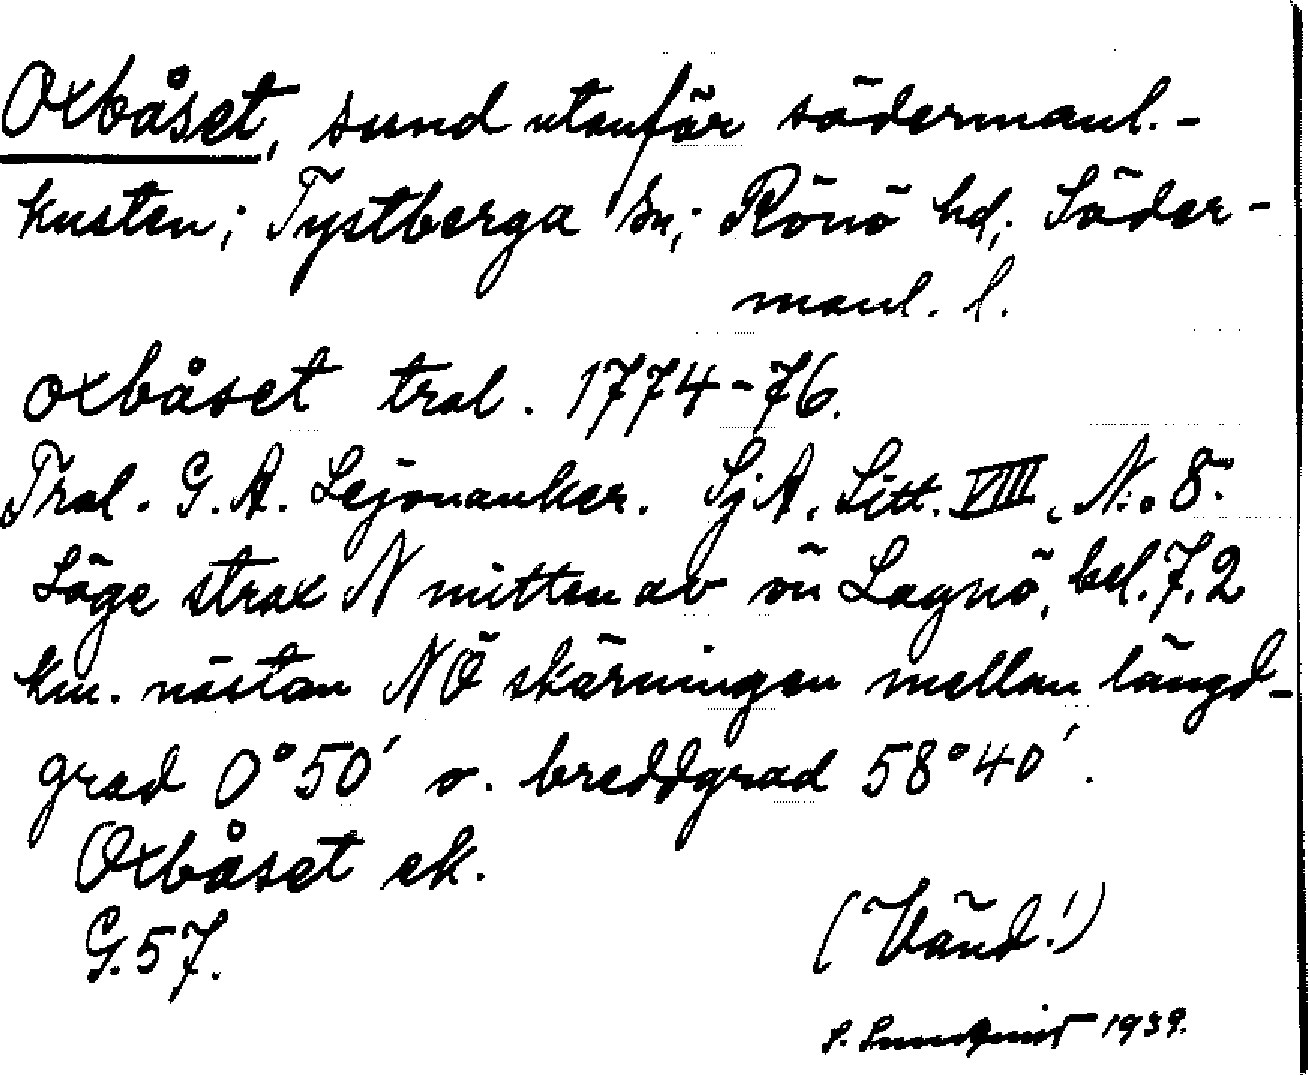 Oxbåset, sund utanför södermanl.-
kusten; Tystberga sn; Rönö hd; Söder-
manl. l.
oxbåset tral. 1774-76.
Tral. G. A. Lejonanker. SjA, Litt. VIII, N:o 8.
Läge strax N mitten av ön Lagnö, bel. 7,2
km. nästan NÖ skärningen mellan längd-
grad 0°50′ o. breddgrad 58°40′.
Oxbåset ek.
G. 57.
(Vänd!)
S. Sundqvist 1939.